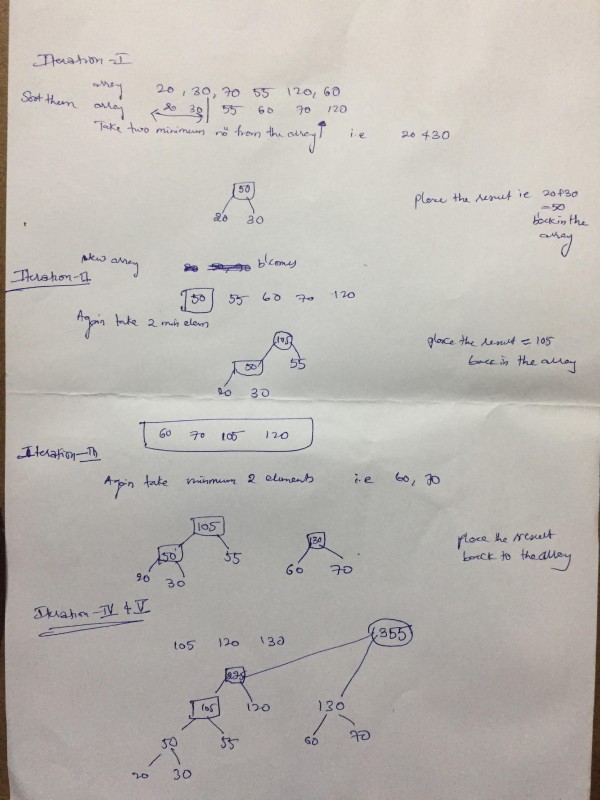 Iteration-I
array 20, 30, 70 55 120, 60
Sort them array 20 30 55 60 70 120
Take two minimum no from the array i.e 20 & 30
50
20 30
place the result ie 20+30
=50
back in the
array
New array b'comes
Iteration-II
50 55 60 70 120
Again take 2 min elem
105
50 55
20 30
place the result = 105
back in the array
60 70 105 120
Iteration-III
Again take minimum 2 elements i.e 60, 70
105
50 55
20 30
130
60 70
place the result
back to the array
Iteration-IV & V
105 120 130
355
225
105 120 130
50 55 60 70
20 30